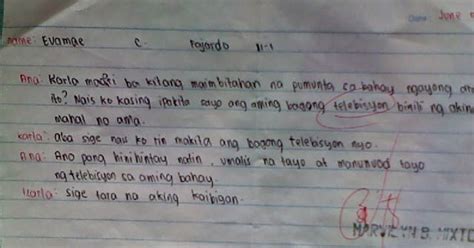 Date: June
name: Evamae C. Fajardo 11-1
Ana: Karla maari ba kitang maimbitahan na pumunta sa bahay ngayong
ito? Nais ko kasing ipakita sayo ang aming bagong telebisyon binili ng aking
mahal na ama.
Karla: aba sige nais ko rin makita ang bagong telebisyon nyo.
Ana: Ano pang hinihintay natin, umalis na tayo at manunuod tayo
ng telebisyon sa aming bahay.
Karla: sige tara na aking kaibigan.
MARVELYN B. MIXTO